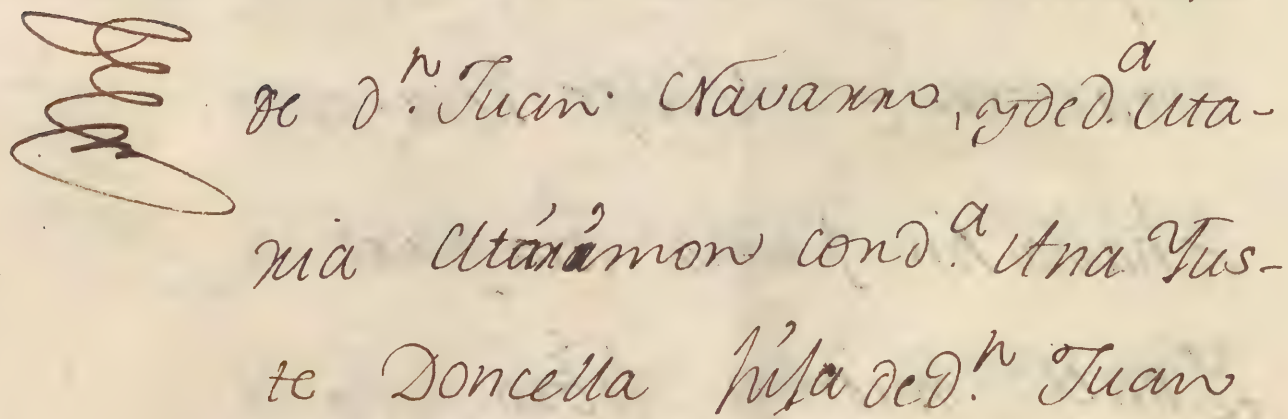 de d.ⁿ Juan Navarro, y de d.ª Ma-
ria con d.ª Ana Yus-
te Doncella hija de d.ⁿ Juan